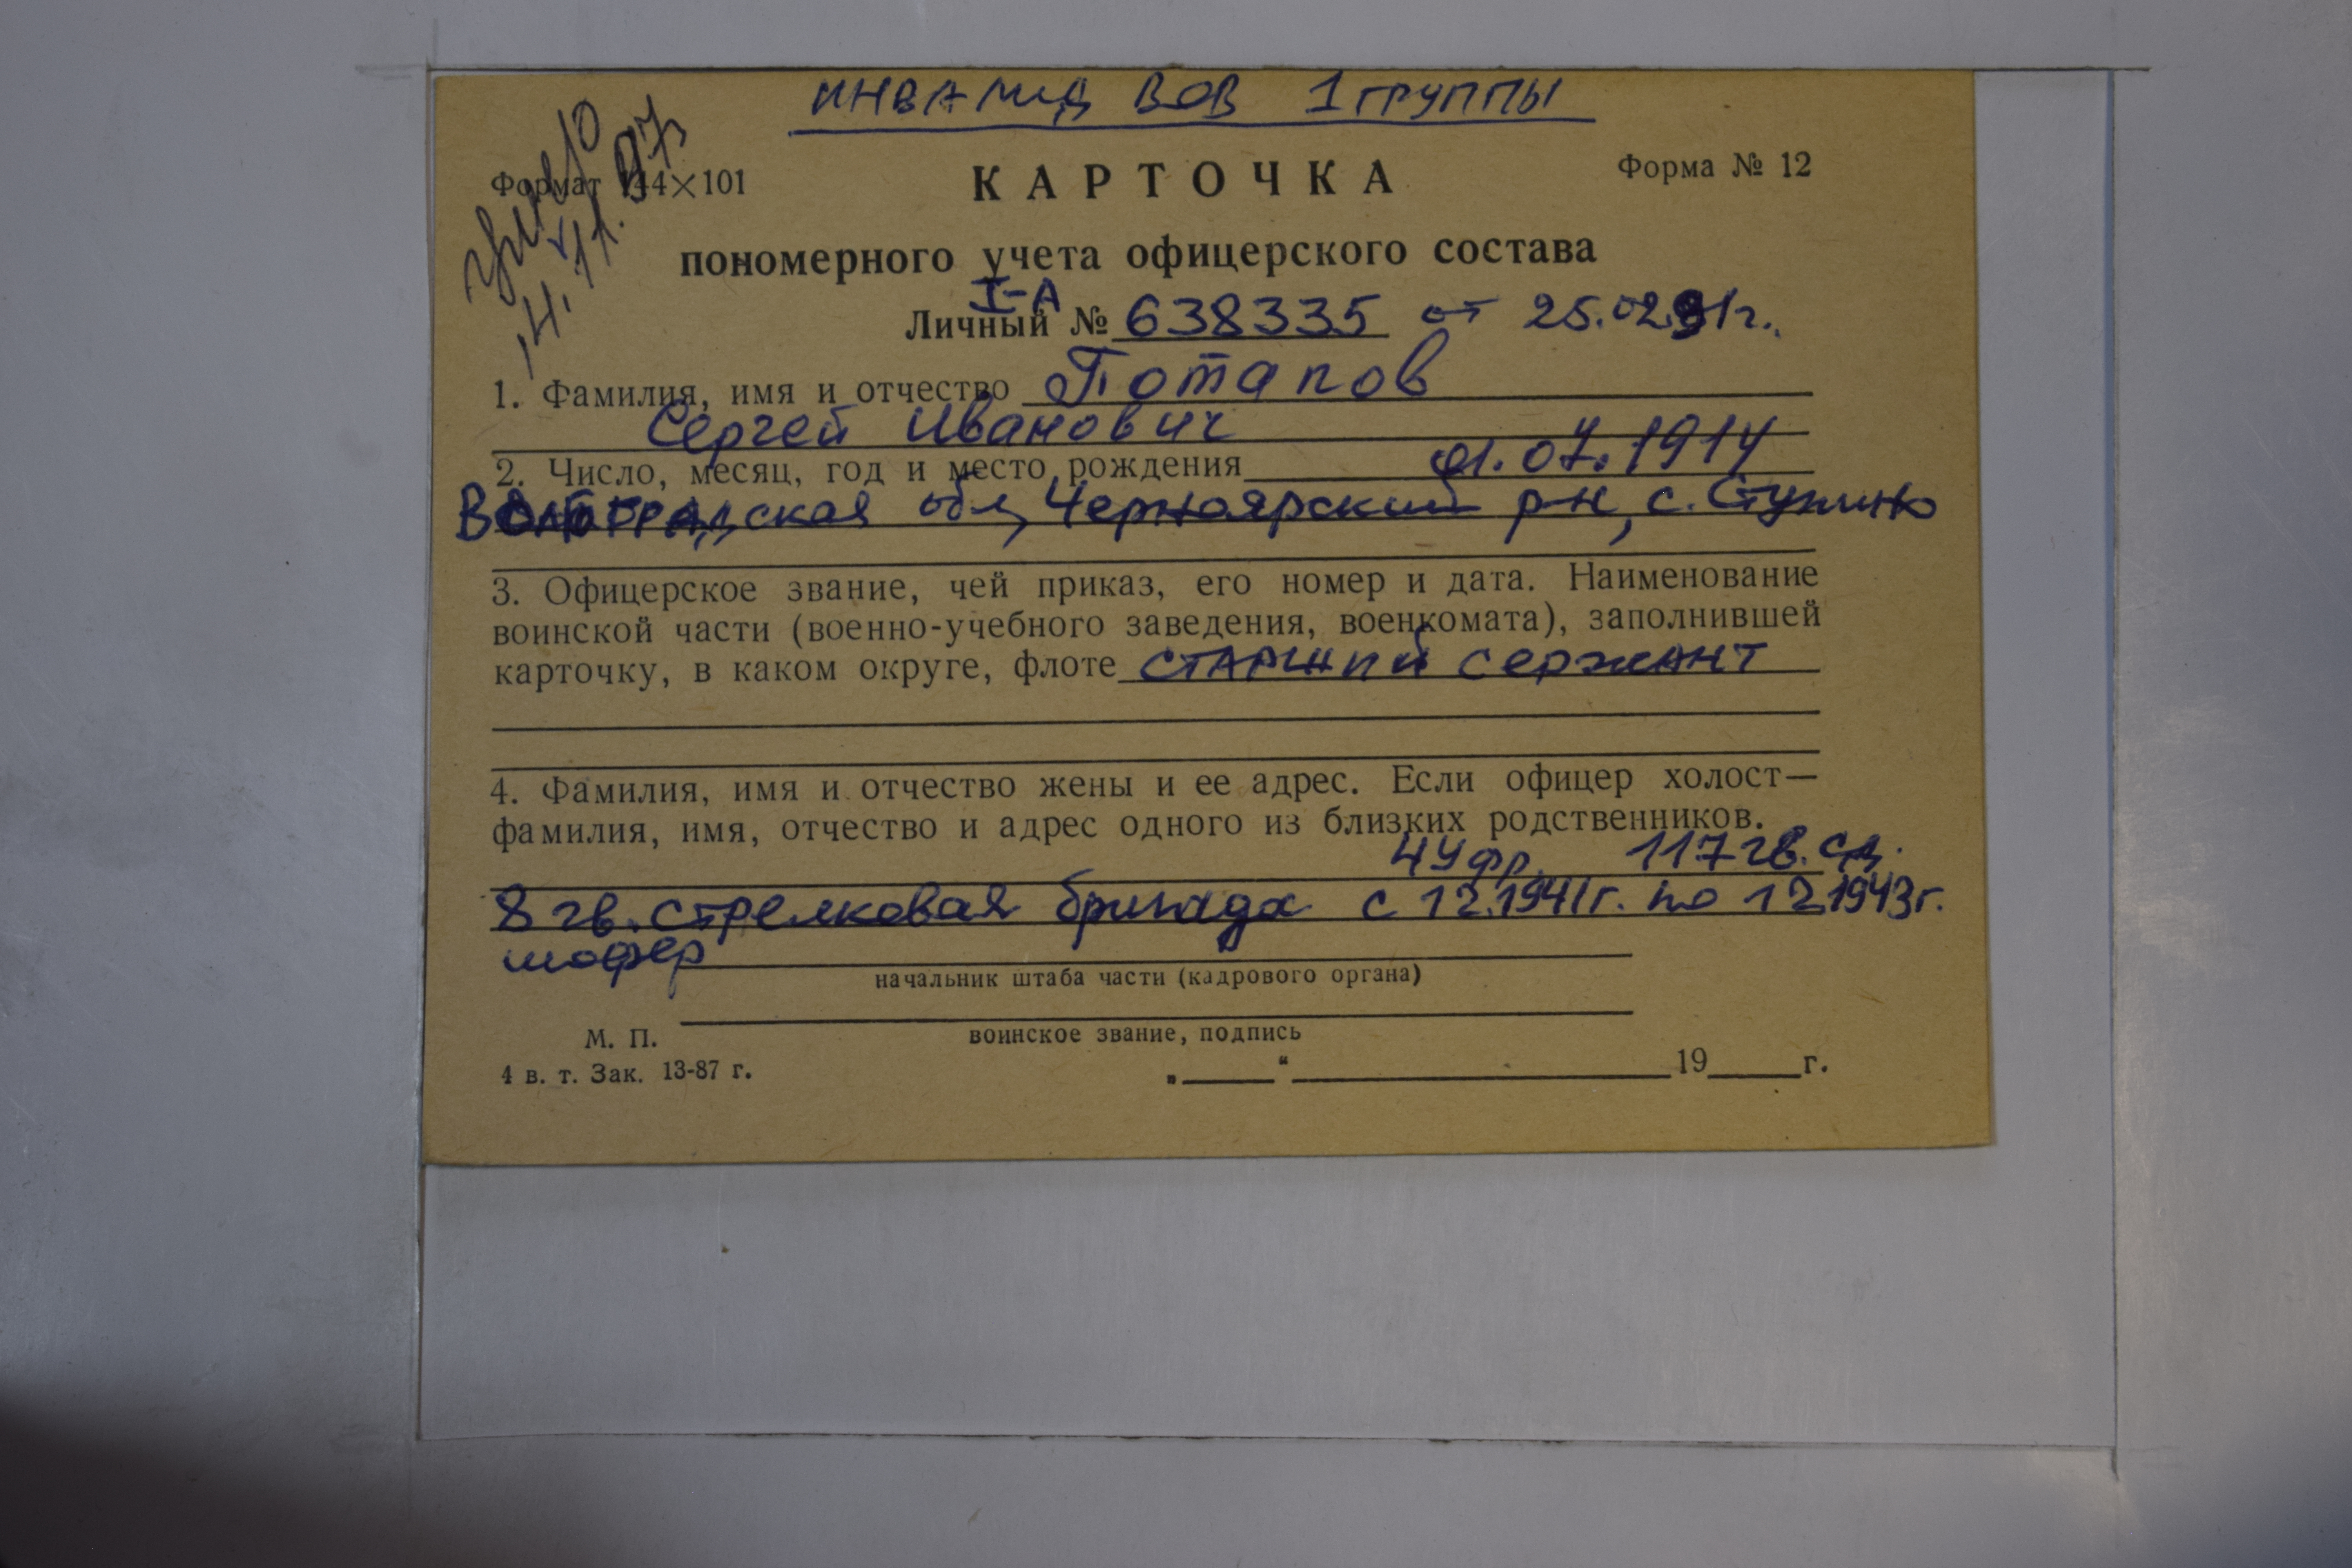 ИНВАЛИД ВОВ 1 ГРУППЫ
умер
14.11.97г
Формат 144×101
КАРТОЧКА
Форма № 12
пономерного учета офицерского состава
I-А
Личный № 638335 от 25.02.91г.
1. Фамилия, имя и отчество Потапов
Сергей Иванович
2. Число, месяц, год и место рождения 01.07.1914
Волгоградская обл, Черноярский р-н, с. Ступино
3. Офицерское звание, чей приказ, его номер и дата. Наименование
воинской части (военно-учебного заведения, военкомата), заполнившей
карточку, в каком округе, флоте СТАРШИЙ сержант
4. Фамилия, имя и отчество жены и ее адрес. Если офицер холост—
фамилия, имя, отчество и адрес одного из близких родственников.
4 У фр. 117 гв. сд.
8 гв. стрелковая бригада с 12.1941г. по 12.1943г.
шофер
начальник штаба части (кадрового органа)
М. П.
воинское звание, подпись
4 в. т. Зак. 13-87 г.
„ “ 19 г.